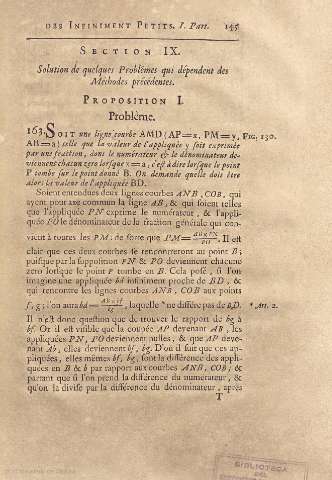 DES INFINIMENT PETITS. I. Part. 145
SECTION IX.
Solution de quelques Problêmes qui dépendent des
Méthodes précédentes.
PROPOSITION I.
Problême.
163. SOIT une ligne courbe AMD (AP=x, PM=y, FIG. 130.
AB=a) telle que la valeur de l'appliquée y soit exprimée
par une fraction, dont le numérateur & le dénominateur de-
viennent chacun zero lorsque x=a, c'est à dire lorsque le point
P tombe sur le point donné B. On demande quelle doit être
alors la valeur de l'appliquée BD.
Soient entendues deux lignes courbes ANB, COB, qui
ayent pour axe commun la ligne AB, & qui soient telles
que l'appliquée PN exprime le numérateur, & l'appli-
quée PO le dénominateur de la fraction générale qui con-
vient à toutes les PM: de sorte que PM= AB×PN/PO. Il est
clair que ces deux courbes se rencontreront au point B;
puisque par la supposition PN & PO deviennent chacune
zero lorsque le point P tombe en B. Cela posé, si l'on
imagine une appliquée bd infiniment proche de BD, &
qui rencontre les lignes courbes ANB, COB aux points
f, g; l'on aura bd= AB×bf/bg, laquelle * ne différe pas de BD. * Art. 2.
Il n'est donc question que de trouver le rapport de bg à
bf. Or il est visible que la coupée AP devenant AB, les
appliquées PN, PO deviennent nulles, & que AP deve-
nant Ab, elles deviennent bf, bg. D'où il suit que ces ap-
pliquées, elles mêmes bf, bg, sont la différence des appli-
quées en B & b par rapport aux courbes ANB, COB; &
partant que si l'on prend la différence du numérateur, &
qu'on la divise par la différence du dénominateur, après
T
BIBLIOTECA